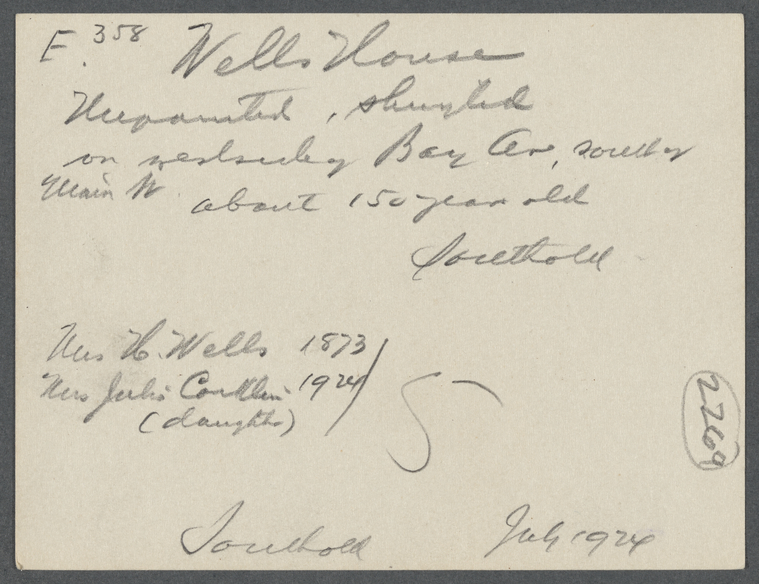 E. 358 Wells House
Unpainted, shingled
on west side of Bay Av, south of
Main St about 150 years old
Southold
Mrs H. Wells 1873
Mrs Julia Conklin 1924
(daughter)
5
2269
Southold July 1924